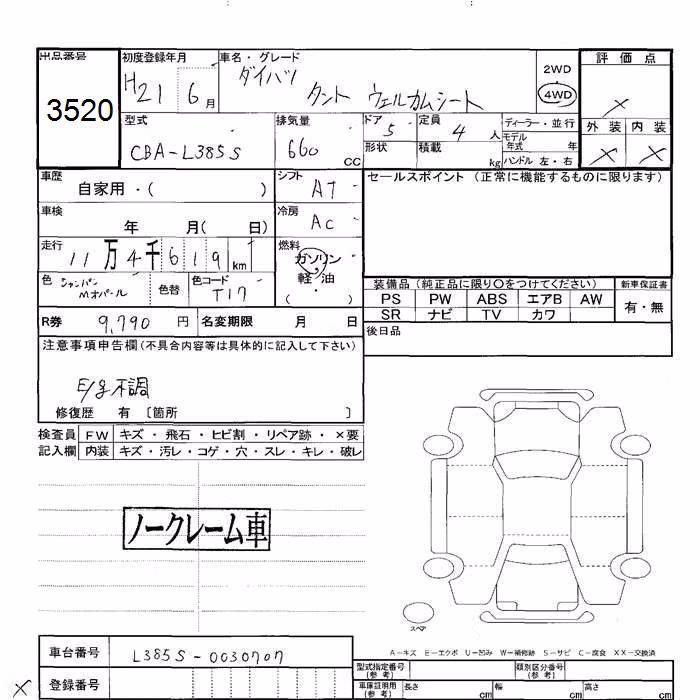 出品番号
3520
初度登録年月
H21 6月
車名・グレード
ダイハツ
タント ウェルカムシート
2WD
4WD
評価点
×
外装 内装
× ×
型式
CBA-L385S
排気量
660 CC
ドア 5
形状
定員 4人
積載 kg
ディーラー・並行
モデル年式 年
ハンドル 左・右
車歴
自家用・( )
シフト AT
セールスポイント (正常に機能するものに限ります)
車検
年 月( 日)
冷房 AC
走行
11万4千619km
燃料
ガソリン
軽油
・( )
色 シャンパンMオパール
色替
色コード T17
装備品(純正品に限り〇をつけてください)
新車保証書
PS PW ABS エアB AW
SR ナビ TV カワ
有・無
R券 9,790円
名変期限 月 日
後日品
注意事項申告欄(不具合内容等は具体的に記入して下さい)
E/g不調
修復歴 有 〔箇所 〕
検査員記入欄
FW キズ・飛石・ヒビ割・リペア跡・×要
内装 キズ・汚レ・コゲ・穴・スレ・キレ・破レ
ノークレーム車
スペア
A-キズ E-エクボ U-凹み W-補修跡 S-サビ C-腐食 XX-交換済
車台番号 L385S-0030707
登録番号
×
型式指定番号(参考)
類別区分番号(参考)
車庫証明用(参考) 長さ cm 幅 cm 高さ cm